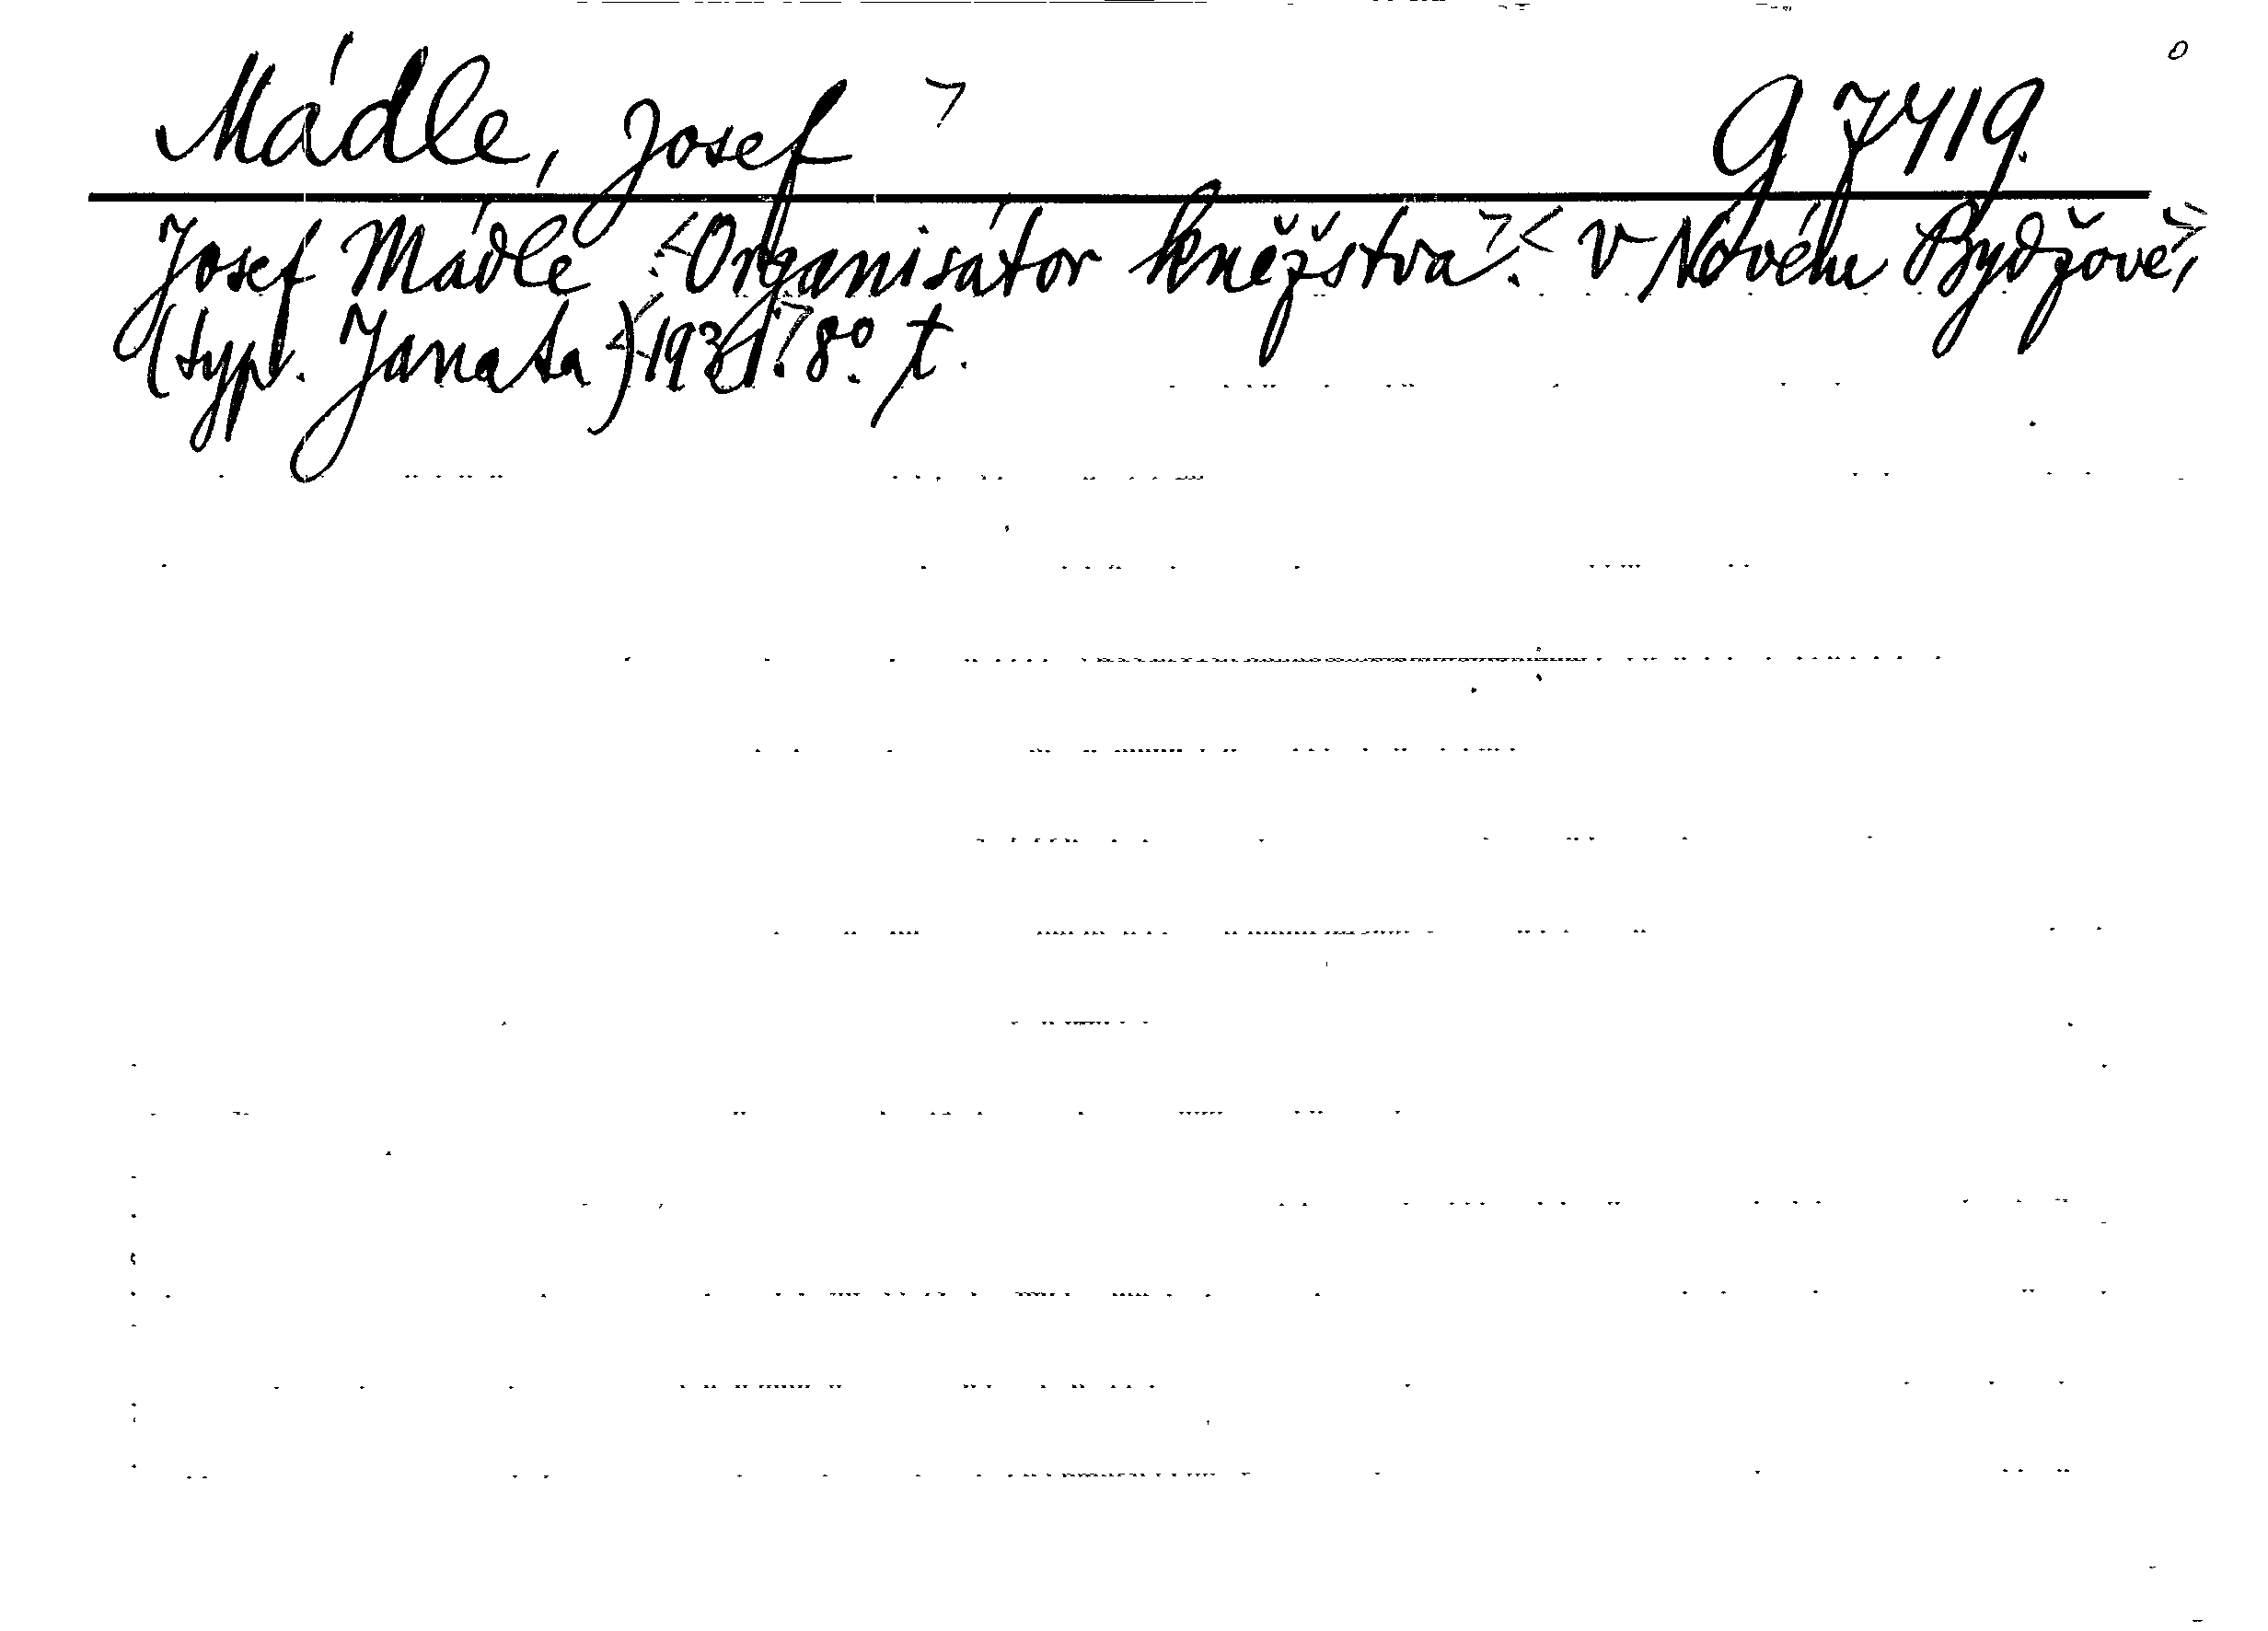 Mádle, Josef G 7419.
Josef Mádle : Organisátor kněžstva. V Novém Bydžově,
(typ. Janata) 1931. 8°. t.